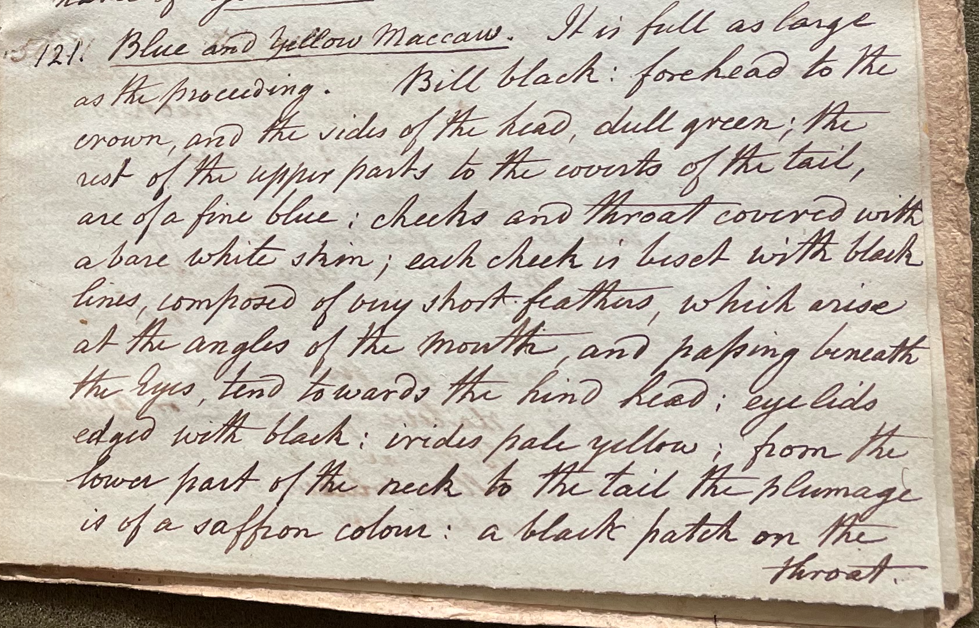 name of
121. Blue and Yellow Maccaw. It is full as large
as the proceeding. Bill black: forehead to the
crown, and the sides of the head, dull green; the
rest of the upper parts to the coverts of the tail,
are of a fine blue; cheeks and throat covered with
a bare white skin; each cheek is beset with black
lines, composed of very short feathers, which arise
at the angles of the mouth, and paſsing beneath
the Eyes, tend towards the hind head; eyelids
edged with black: irides pale yellow; from the
lower part of the neck to the tail the plumage
is of a saffron colour: a black patch on the
throat.